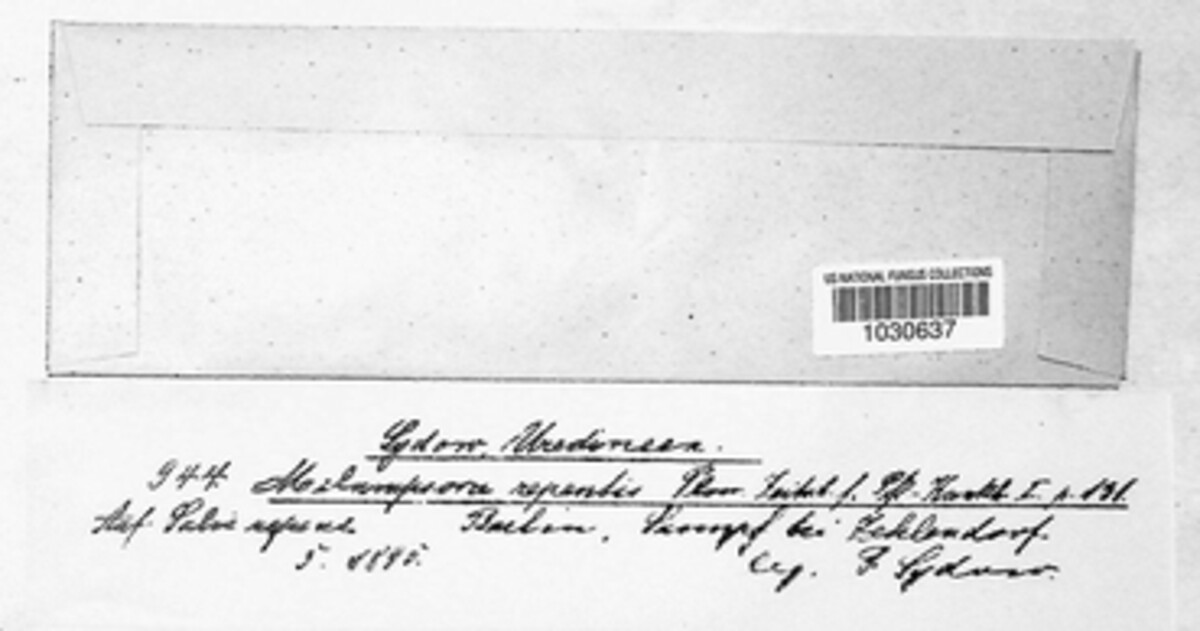 US NATIONAL FUNGUS COLLECTIONS
1030637
Sydow, Uredineen.
944 Melampsora repentis Plow. Zeitsch. f. Pfl.-Krankh. I. p. 131.
Auf Salix repens. Berlin, Sumpf bei Zehlendorf.
5. 1895. leg. P. Sydow.